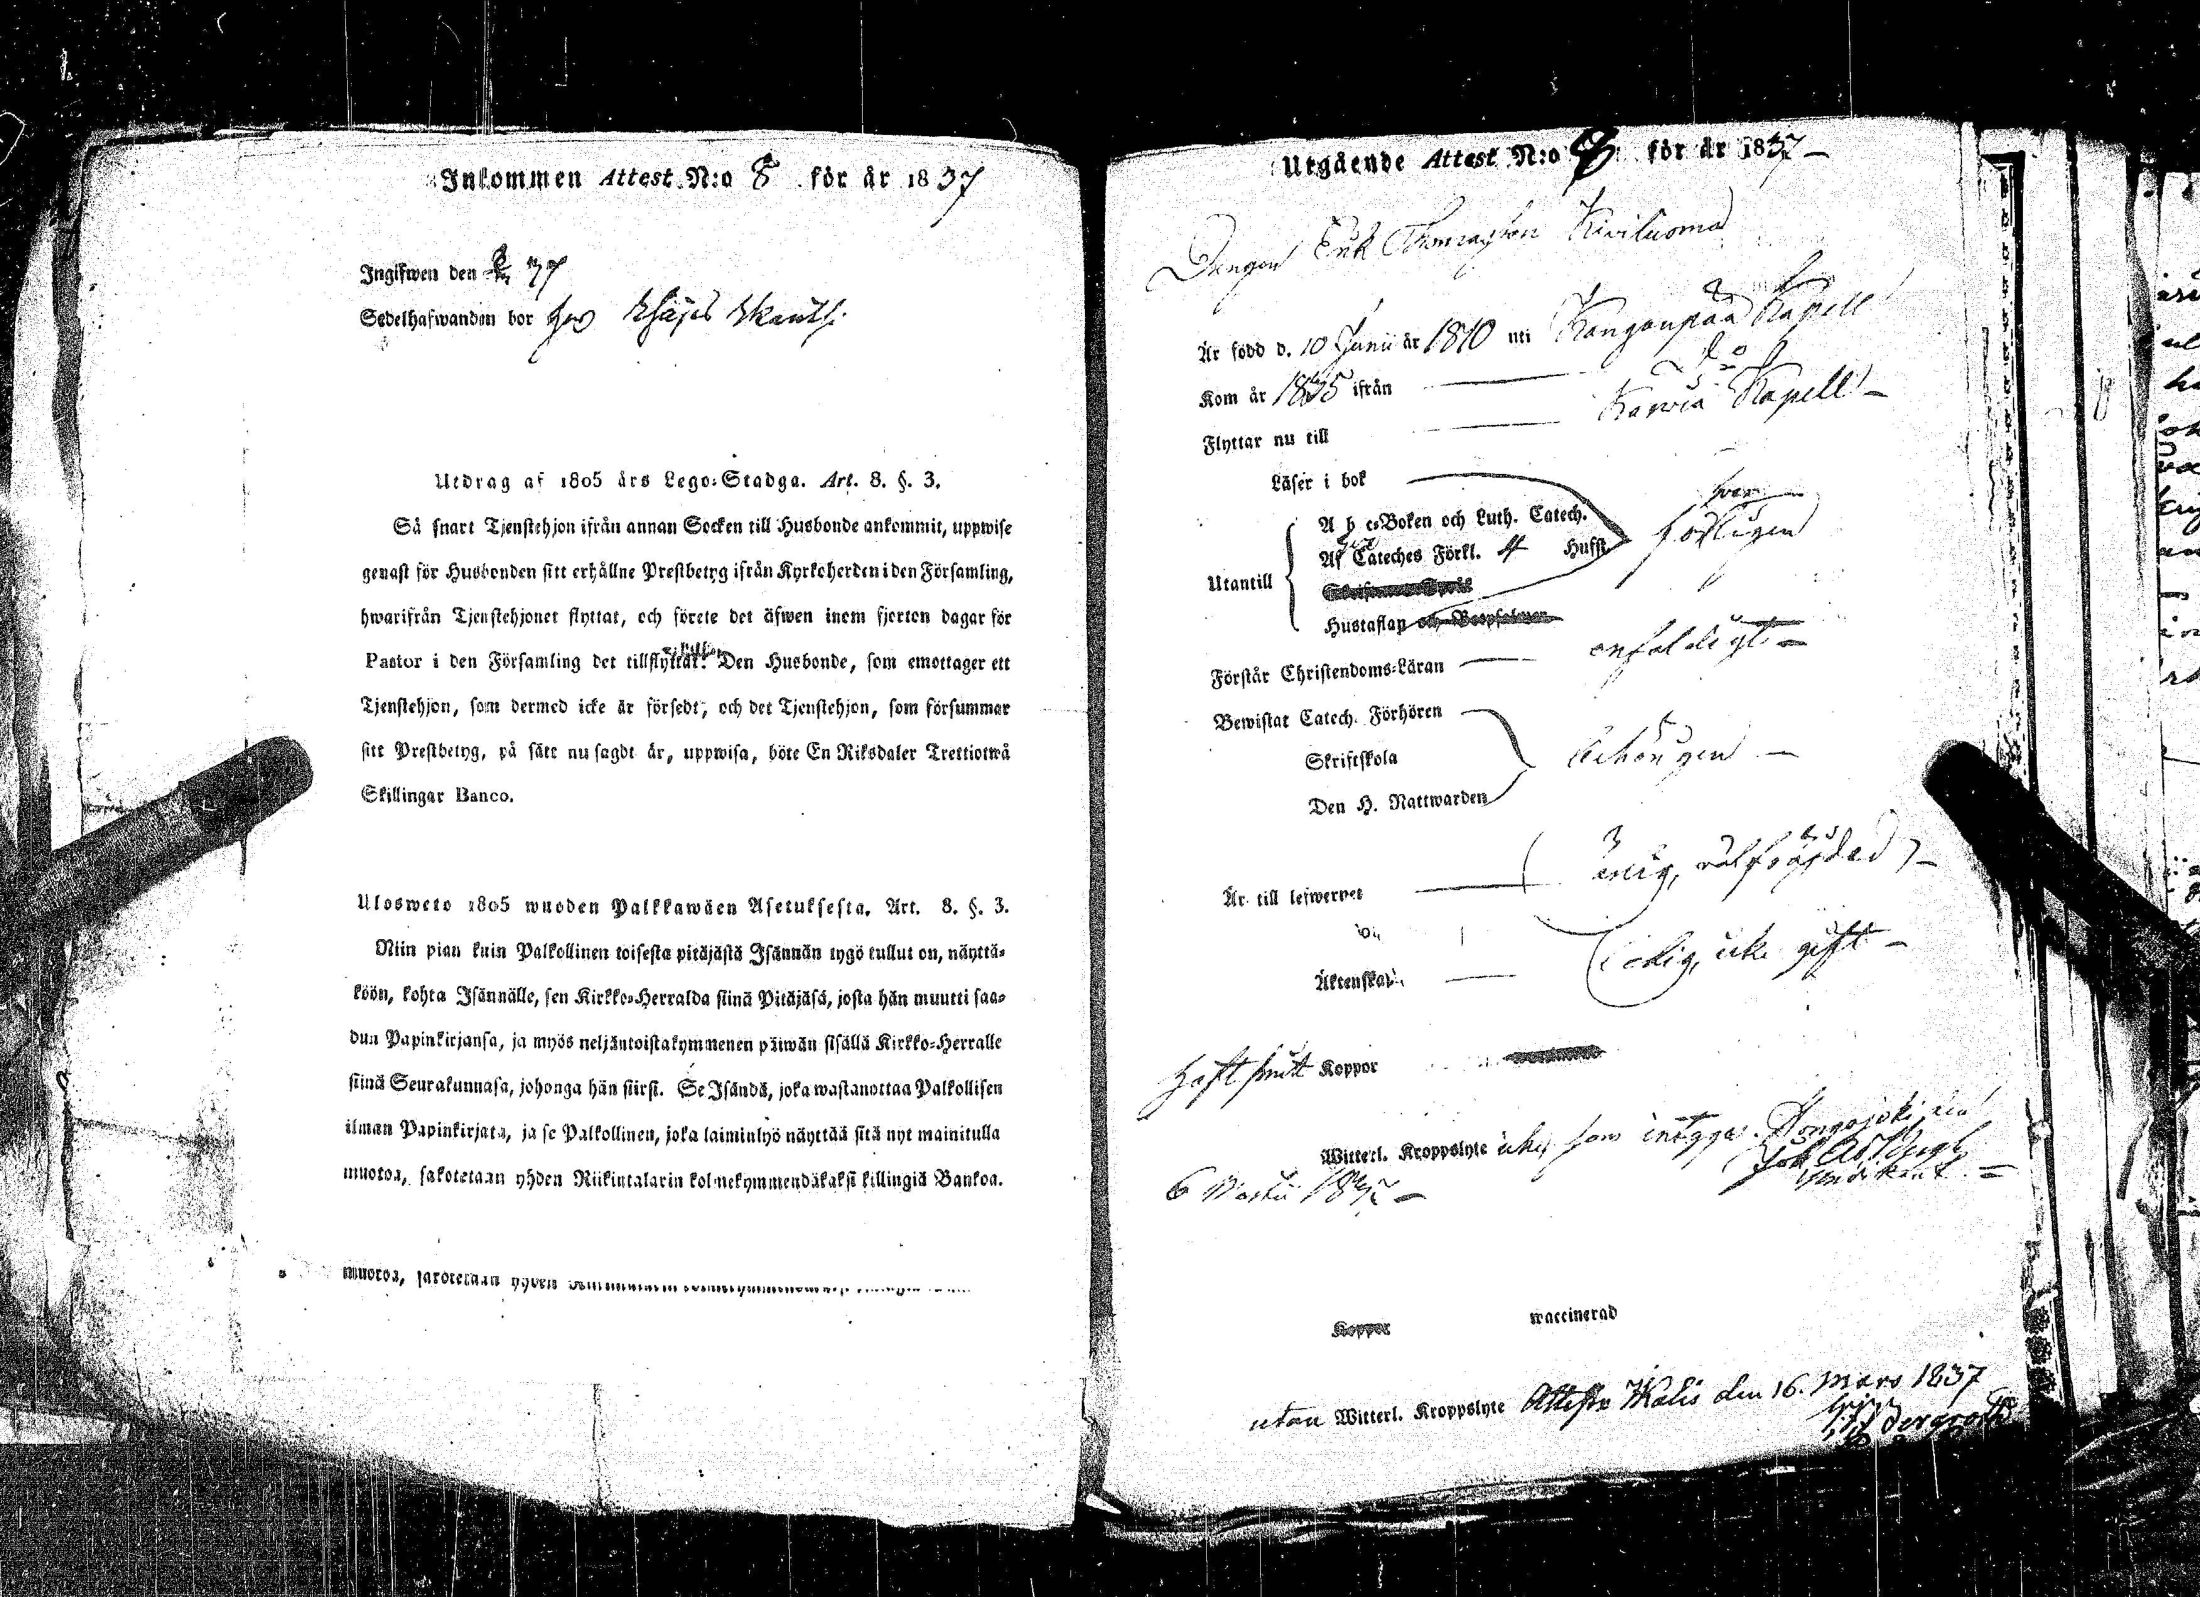 Inkommen Attest N:o 8 för år 1837
Ingifwen den
Sedelhafwanden bor hos
Utdrag af 1805 års Lego-Stadga. Art. 8. §. 3.
Så snart Tjenstehjon ifrån annan Socken till Husbonde ankommit, uppwise
genast för Husbonden sitt erhållne Prestbetyg ifrån Kyrkoherden i den Församling,
hwarifrån Tjenstehjonet flyttat, och förete det äfwen inom fjorton dagar för
Pastor i den Församling det tillflyttat. Den Husbonde, som emottager ett
Tjenstehjon, som dermed icke är försedt, och det Tjenstehjon, som försummar
sitt Prestbetyg, på sätt nu sagdt är, uppwisa, böte En Riksdaler Trettiotwå
Skillingar Banco.
Ulosweto 1805 wuoden Palkkawäen Asetuksesta. Art. 8. §. 3.
Niin pian kuin Palkollinen toisesta pitäjästä Isännän tygö tullut on, näyttä-
köön, kohta Isännälle, sen Kirkko-Herralda siinä Pitäjäsä, josta hän muutti saa-
dun Papinkirjansa, ja myös neljäntoistakymmenen päiwän sisällä Kirkko-Herralle
siinä Seurakunnasa, johonga hän siirsi. Se Isändä, joka wastanottaa Palkollisen
ilman Papinkirjata, ja se Palkollinen, joka laiminlyö näyttää sitä nyt mainitulla
muotoa, sakotetaan yhden Riikintalarin kolmekymmendäkaksi killingiä Bankoa.
muotoa, sakotetaan yhden
Utgående Attest N:o 8 för år 1837
Drengen Erik Thomasson Kiviluoma
Är född d. 10 Junii år 1810 uti Kangonpää Kapell
Kom år 1835 ifrån do
Flyttar nu till Karvia Kapell
Läser i bok
A b c-Boken och Luth. Catech. försvarligen
Af Cateches Förkl. 4 Hufst
Utantill
Hustaflan och Botpsalmer
Förstår Christendoms-Läran enfaldigt
Bewistat Catech. Förhören
Skriftskola behörigen
Den H. Nattwarden
Är till lefwernet ärlig, välfräjdad
Äktenskap ledig, icke gift
haft smitt Koppor
Witterl. Kroppslyte icke, som intygar. Hongojoki den
6 Martii 1837
Koppor waccinerad
utan Witterl. Kroppslyte Attest. Ikalis den 16. Mars 1837